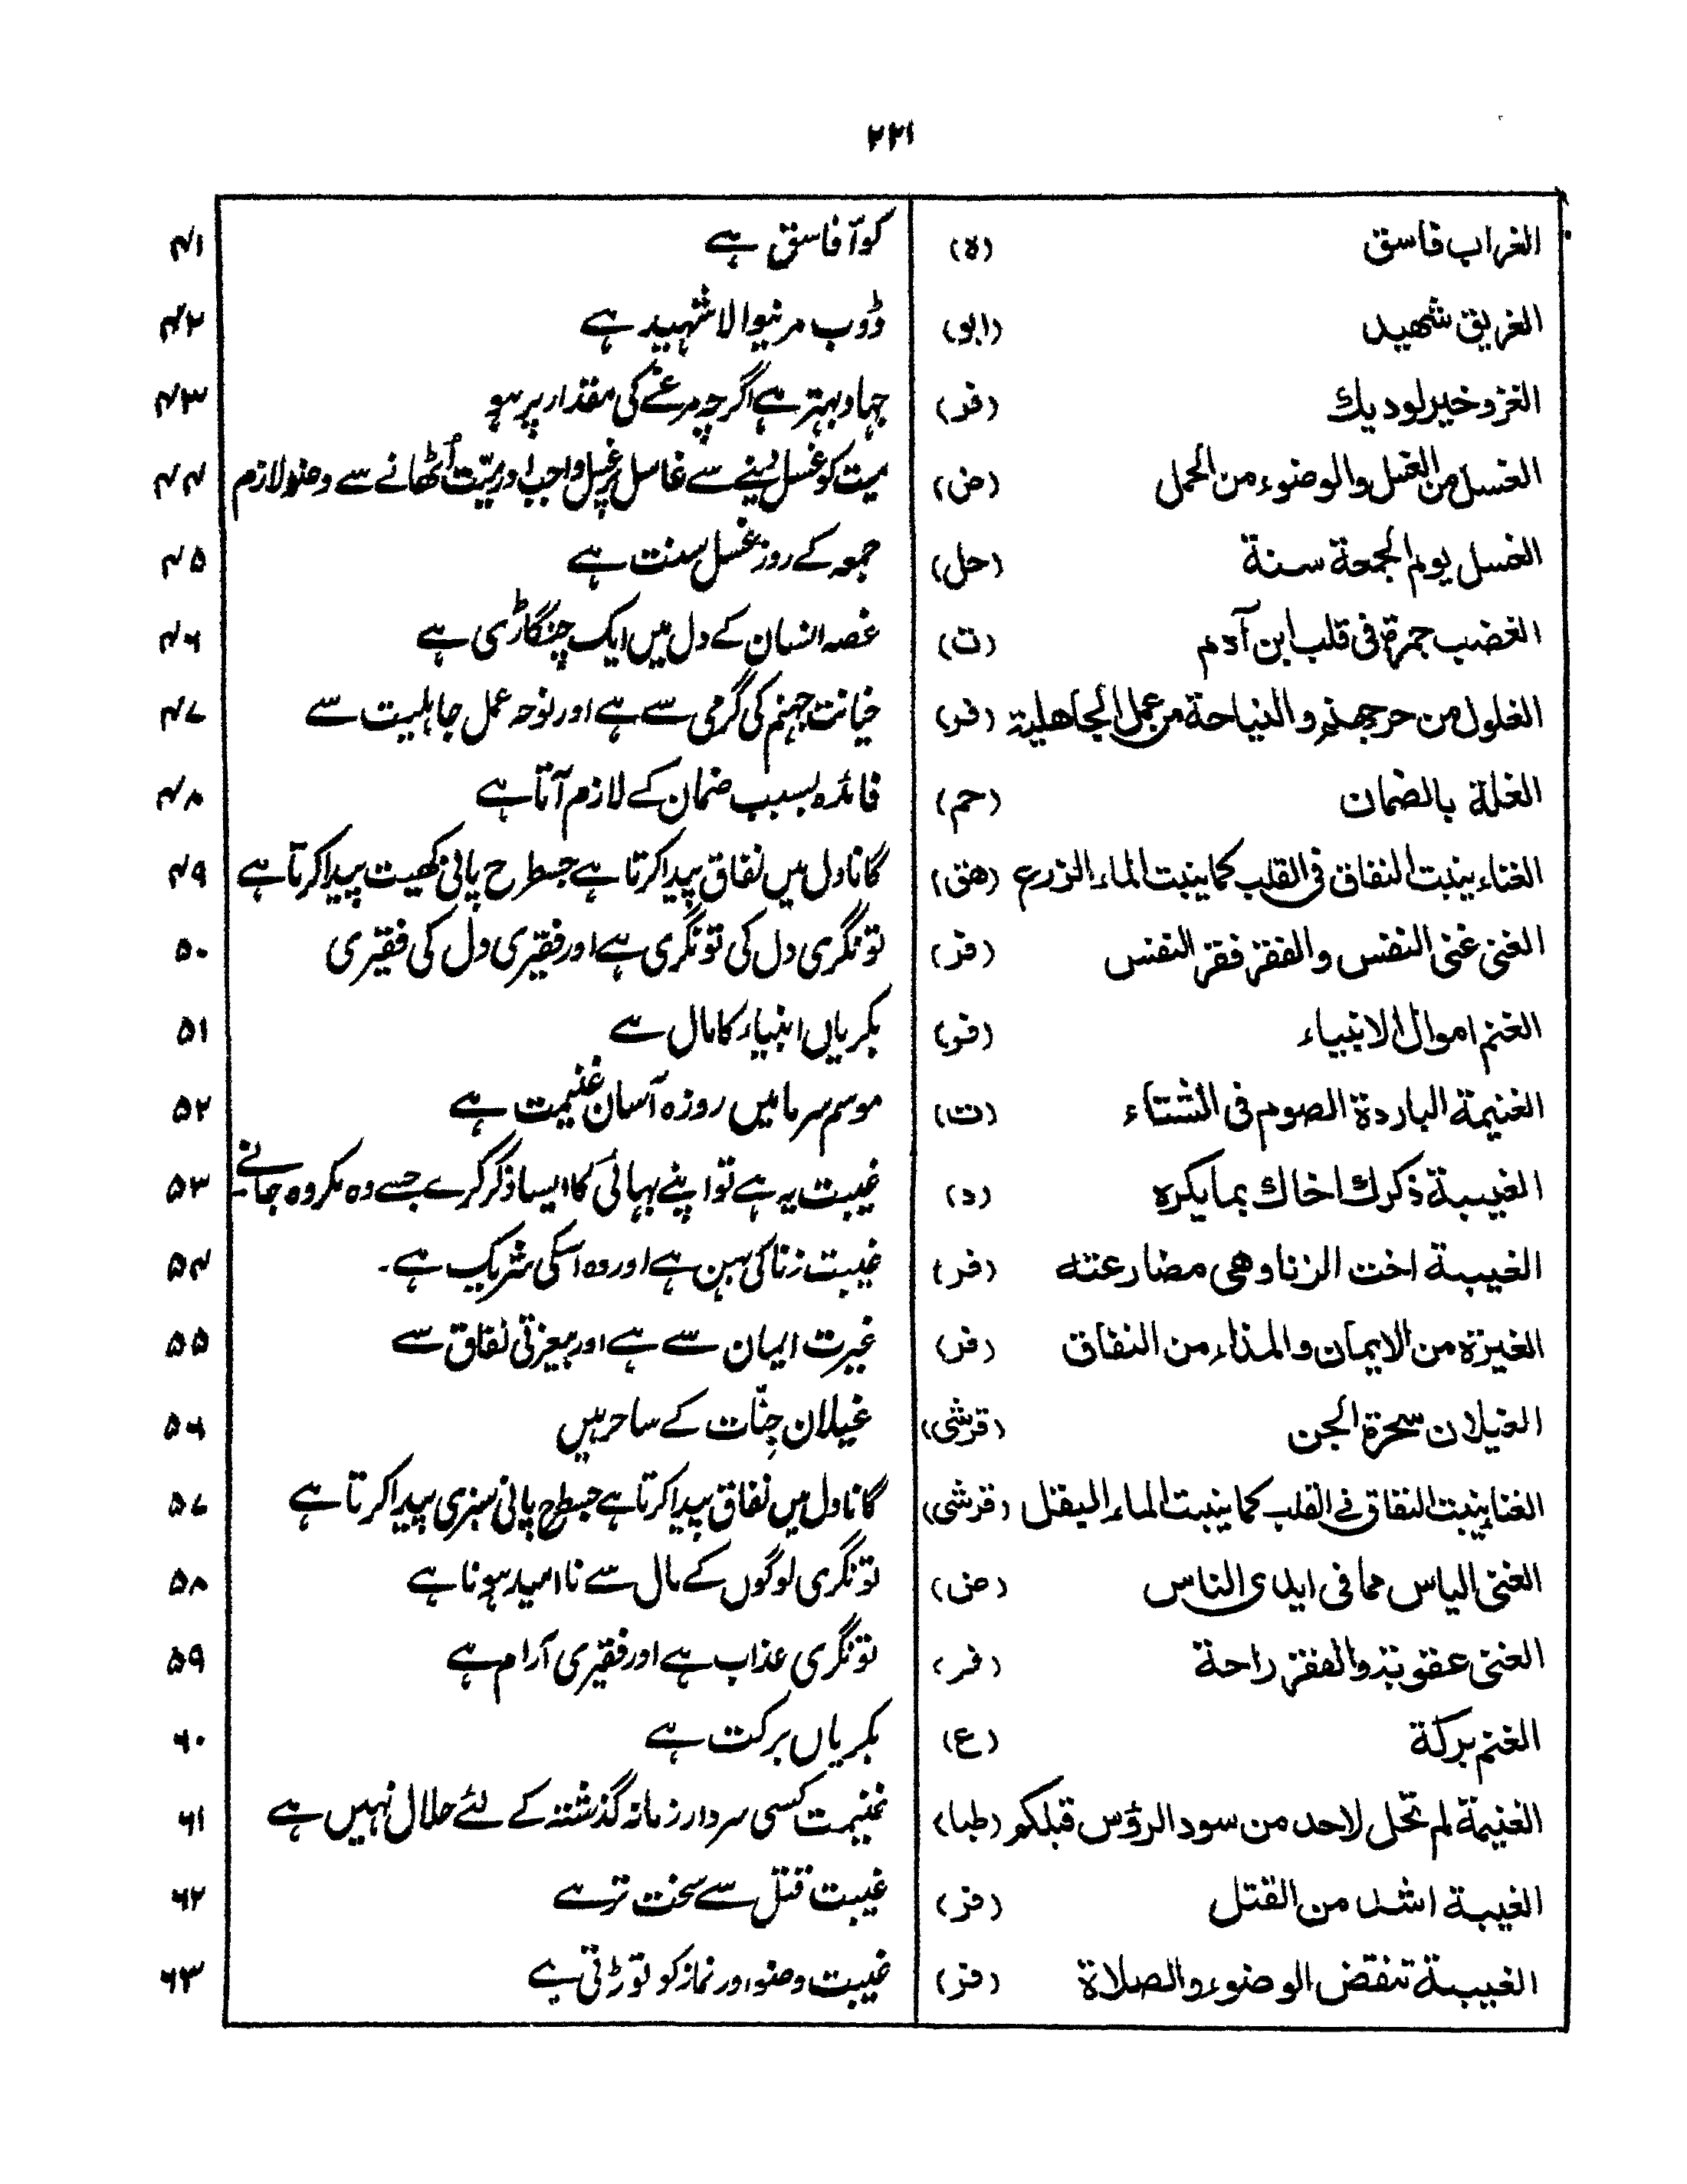 ۲۲۱
الغراب فاسق (ه) کوّا فاسق ہے ۴۱
الغريق شهيد (ابو) ڈوب مرنیوالا شہید ہے ۴۲
الغزو خير لوديك (فر) جہاد بہتر ہے اگرچہ مرغے کی مقدار پر ہو ۴۳
الغسل من الغسل والوضوء من الحمل (ض) میت کو غسل دینے سے غاسل پر غسل واجب اور میّت اُٹھانے سے وضو لازم ۴۴
الغسل يوم الجمعة سنة (حل) جمعہ کے روز غسل سنت ہے ۴۵
الغضب جمرة فى قلب ابن آدم (ت) غصہ انسان کے دل میں ایک چنگاڑی ہے ۴۶
الغلول من حر جهنم والنياحة من عمل الجاهلية (فر) خیانت جہنم کی گرمی سے ہے اور نوحہ عمل جاہلیت سے ۴۷
الغلة بالضمان (حم) فائدہ بسبب ضمان کے لازم آتا ہے ۴۸
الغناء ينبت النفاق فى القلب كما ينبت الماء الزرع (هق) گانا دل میں نفاق پیدا کرتا ہے جسطرح پانی کھیت پیدا کرتا ہے ۴۹
الغنى غنى النفس والفقر فقر النفس (فر) تونگری دل کی تونگری ہے اور فقیری دل کی فقیری ۵۰
الغنم اموال الانبياء (فر) بکریاں انبیاء کا مال ہے ۵۱
الغنيمة الباردة الصوم فى الشتاء (ت) موسم سرما میں روزہ آسان غنیمت ہے ۵۲
الغيبة ذكرك اخاك بما يكره (د) غیبت یہ ہے تو اپنے بہائی کا ایسا ذکر کرے جسے وہ مکروہ جانے۔ ۵۳
الغيبة اخت الزنا وهى مضارعته (فر) غیبت زنا کی بہن ہے اور وہ اسکی شریک ہے۔ ۵۴
الغيرة من الايمان والمذاء من النفاق (فر) غیرت ایمان سے ہے اور بیعزتی نفاق سے ۵۵
الغيلان سحرة الجن (قرشى) غیلان جِنّات کے ساحر ہیں ۵۶
الغناء ينبت النفاق فى القلب كما ينبت الماء البقل (قرشى) گانا دل میں نفاق پیدا کرتا ہے جسطرح پانی سبزی پیدا کرتا ہے ۵۷
الغنى الياس مما فى ايدى الناس (ض) تونگری لوگوں کے مال سے نا امید ہونا ہے ۵۸
الغنى عقوبة والفقر راحة (فر) تونگری عذاب ہے اور فقیری آرام ہے ۵۹
الغنم بركة (ع) بکریاں برکت ہے ۶۰
الغنيمة لم تحل لاحد من سود الرؤس قبلكم (طبا) غنیمت کسی سردار زمانہ گذشتہ کے لئے حلال نہیں ہے ۶۱
الغيبة اشد من القتل (فر) غیبت قتل سے سخت تر ہے ۶۲
الغيبة تنقض الوضوء والصلاة (فر) غیبت وضو اور نماز کو توڑتی ہے ۶۳